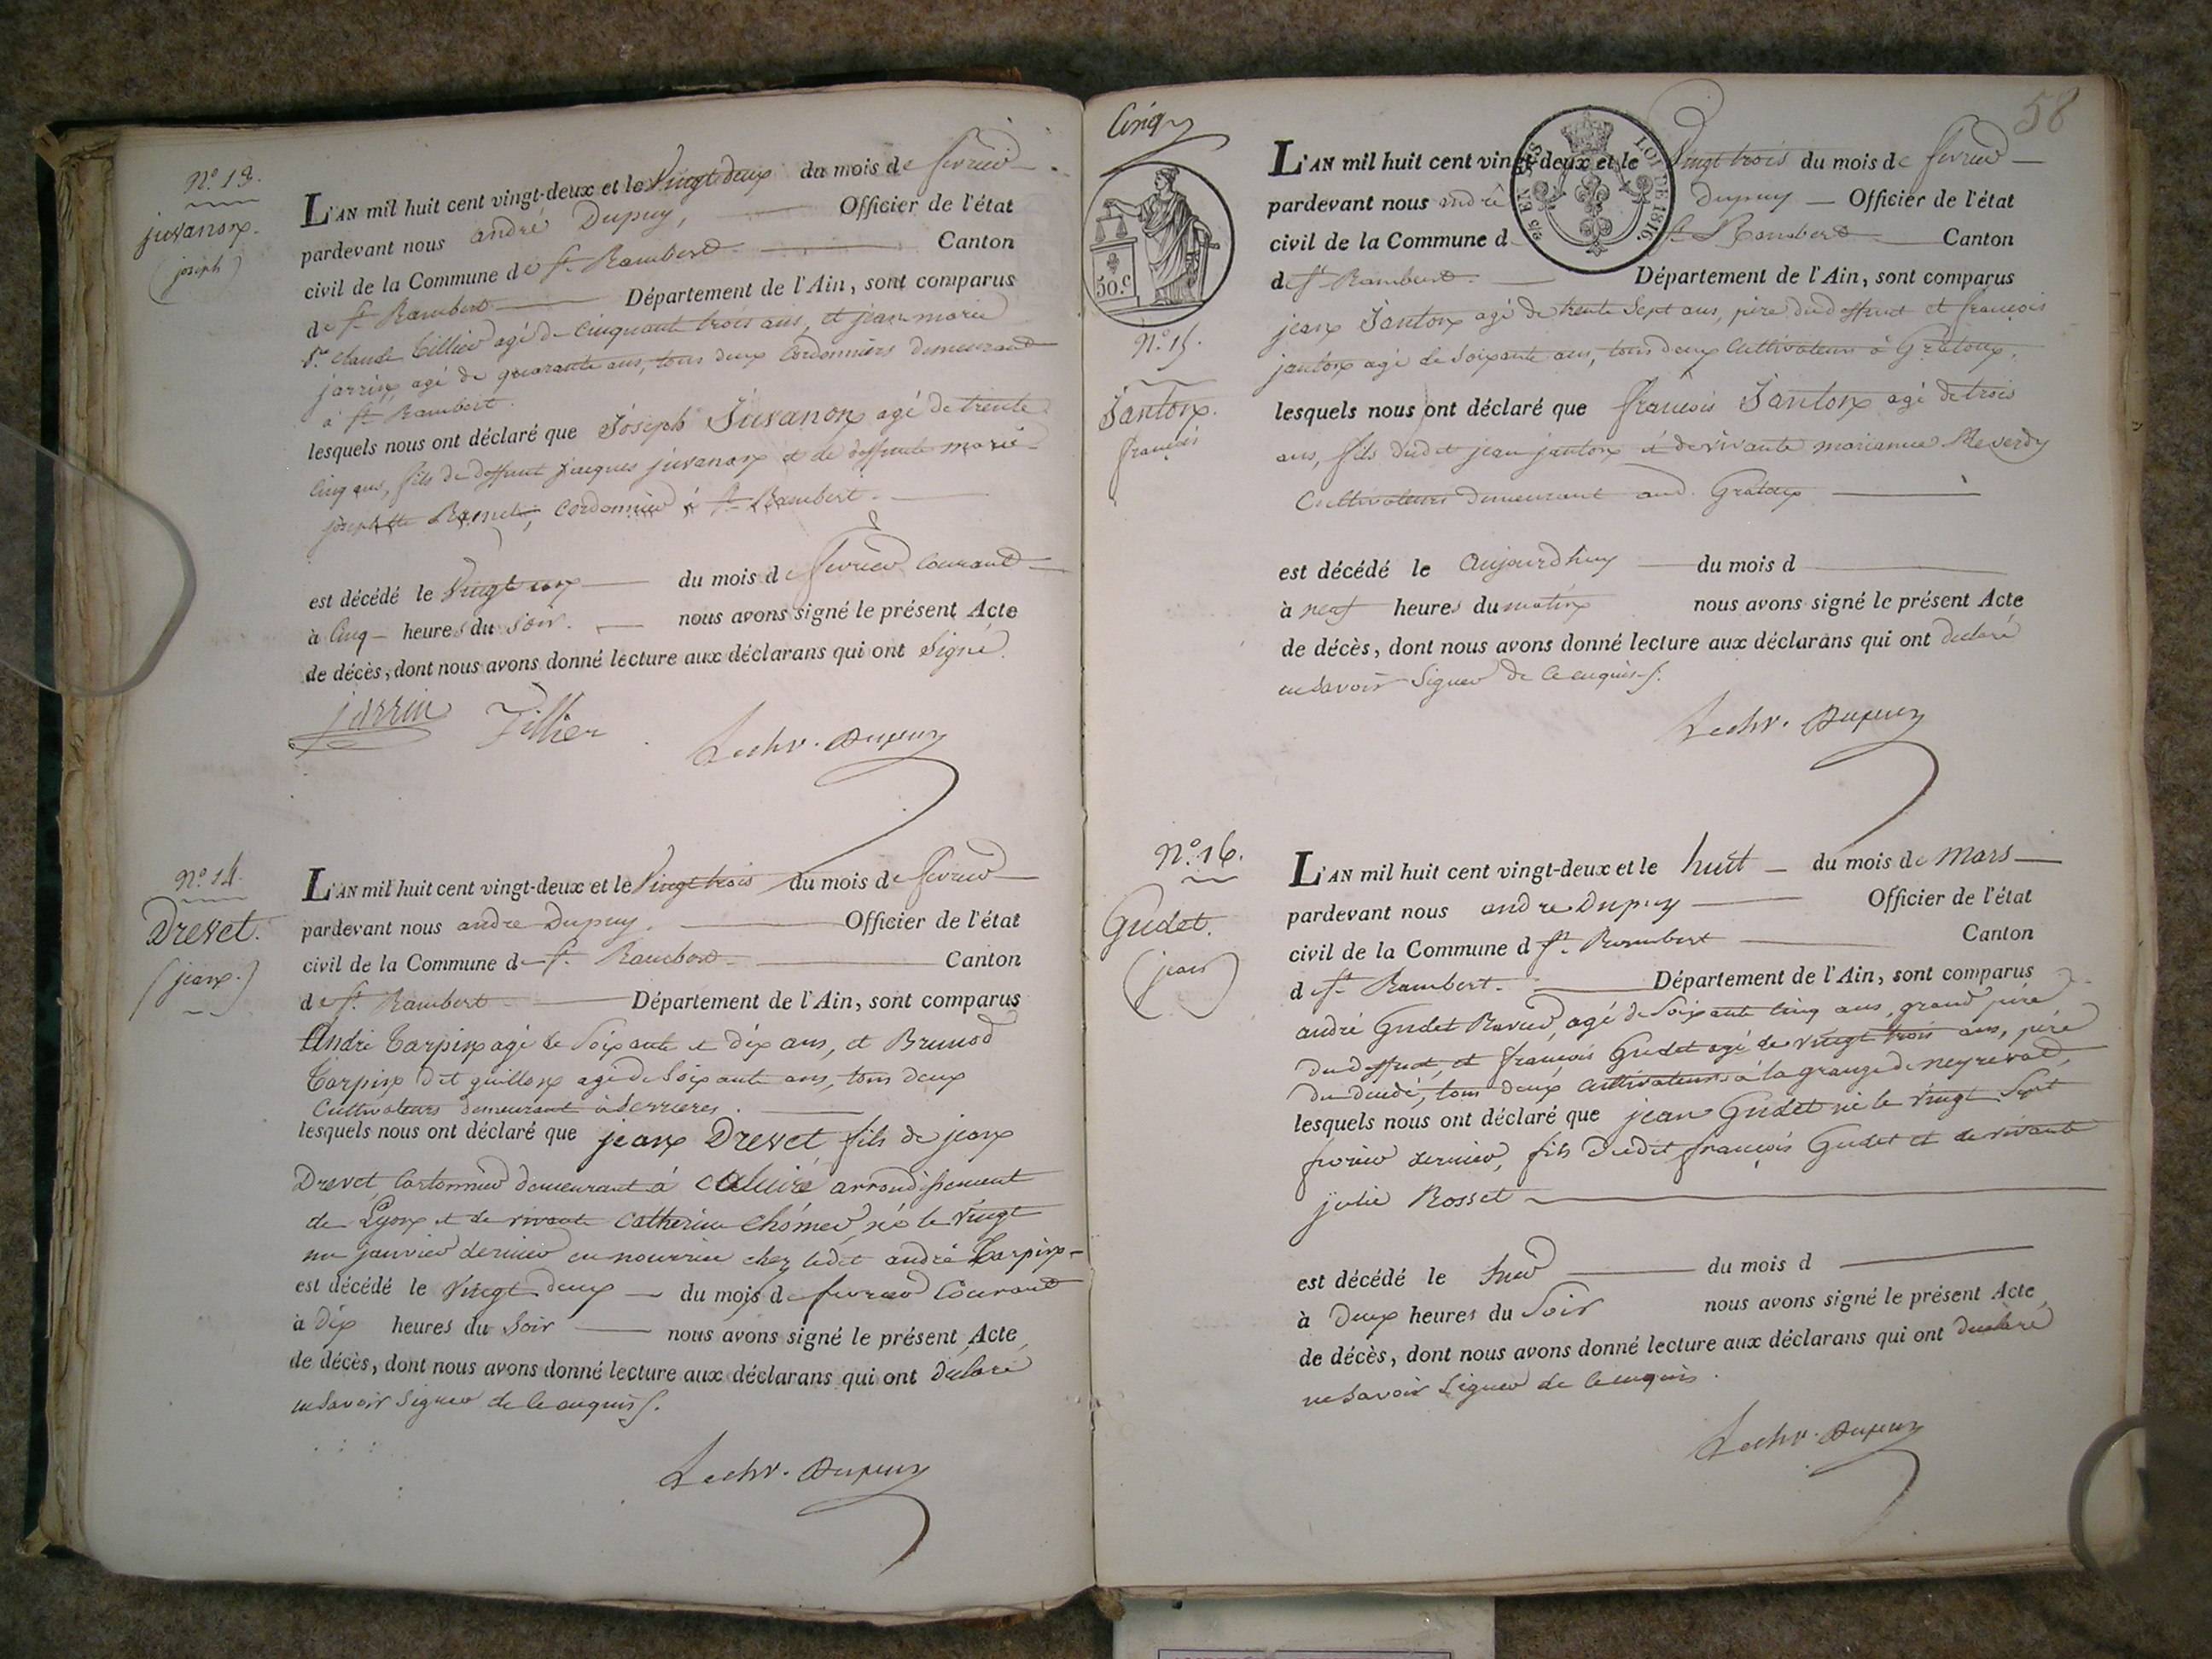 N.o 13.
juvanon.
(joseph)
L'AN mil huit cent vingt-deux et le Vingt deux du mois de fevrier
pardevant nous andré Dupuy, Officier de l'état
civil de la Commune de St. Rambert Canton
de St. Rambert Département de l'Ain, sont comparus
Sr. claude Tillier agé de Cinquante trois ans, et jean marie
jarrin agé de quarante ans, tous deux Cordonniers demeurant
à St. Rambert.
lesquels nous ont déclaré que Joseph Juvanon agé de trente
Cinq ans, fils de deffunt jacques juvanon et de deffunte marie
josephte Ramel, Cordonnier à St. Rambert.
est décédé le Vingt un du mois de fevrier Courant
à Cinq heures du Soir. nous avons signé le présent Acte
de décès, dont nous avons donné lecture aux déclarans qui ont Signé.
jarrin Tillier Dupuy
N.o 14.
Drevet.
(jean.)
L'AN mil huit cent vingt-deux et le Vingt trois du mois de fevrier
pardevant nous andre Dupuy. Officier de l'état
civil de la Commune de St. Rambert Canton
de St. Rambert Département de l'Ain, sont comparus
André Tarpin agé de Soixante et dix ans, et
Tarpin dit guillon agé de Soixante ans, tous deux
Cultivateurs demeurant à Serrieres.
lesquels nous ont déclaré que jean Drevet fils de jean
Drevet, Cartonnier demeurant à caluire arrondissement
de Lyon et de vivante Catherine né le Vingt
un janvier dernier en nourrice chez ledit andré Tarpin
est décédé le Vingt deux du mois de fevrier Courant
à Dix heures du Soir nous avons signé le présent Acte
de décès, dont nous avons donné lecture aux déclarans qui ont déclaré
ne Savoir Signer de ce enquis.
Dupuy
58
50.c
LOI DE 1816.
N.o 15.
Janton.
françois
L'AN mil huit cent vingt-deux et le Vingt trois du mois de fevrier
pardevant nous andré Dupuy Officier de l'état
civil de la Commune d St. Rambert Canton
de St. Rambert Département de l'Ain, sont comparus
jean Janton agé de trente Sept ans, père du deffunt et françois
janton agé de Soixante ans, tous deux Cultivateurs à Gratoux,
lesquels nous ont déclaré que françois Janton agé de trois
ans, fils dudit jean janton et de vivante marianne Reverdy
Cultivateurs demeurant aud. Gratoux
est décédé le aujourdhuy du mois d
à neuf heures du matin nous avons signé le présent Acte
de décès, dont nous avons donné lecture aux déclarans qui ont declaré
ne Savoir Signer de ce enquis.
Dupuy
N.o 16.
Gudet.
(jean)
L'AN mil huit cent vingt-deux et le huit du mois de mars
pardevant nous andre Dupuy Officier de l'état
civil de la Commune d St. Rambert Canton
de St. Rambert. Département de l'Ain, sont comparus
andré Gudet Ravier, agé de Soixante Cinq ans, grand père
du deffunt, et françois Gudet agé de vingt trois ans, père
du tous deux Cultivateurs à la grange de neyrevat,
lesquels nous ont déclaré que jean Gudet né le Vingt Sept
fevrier dernier, fils dudit françois Gudet et de vivante
julie Rosset
est décédé le hier du mois d
à Deux heures du Soir nous avons signé le présent Acte
de décès, dont nous avons donné lecture aux déclarans qui ont declaré
ne Savoir Signer de ce enquis.
Dupuy